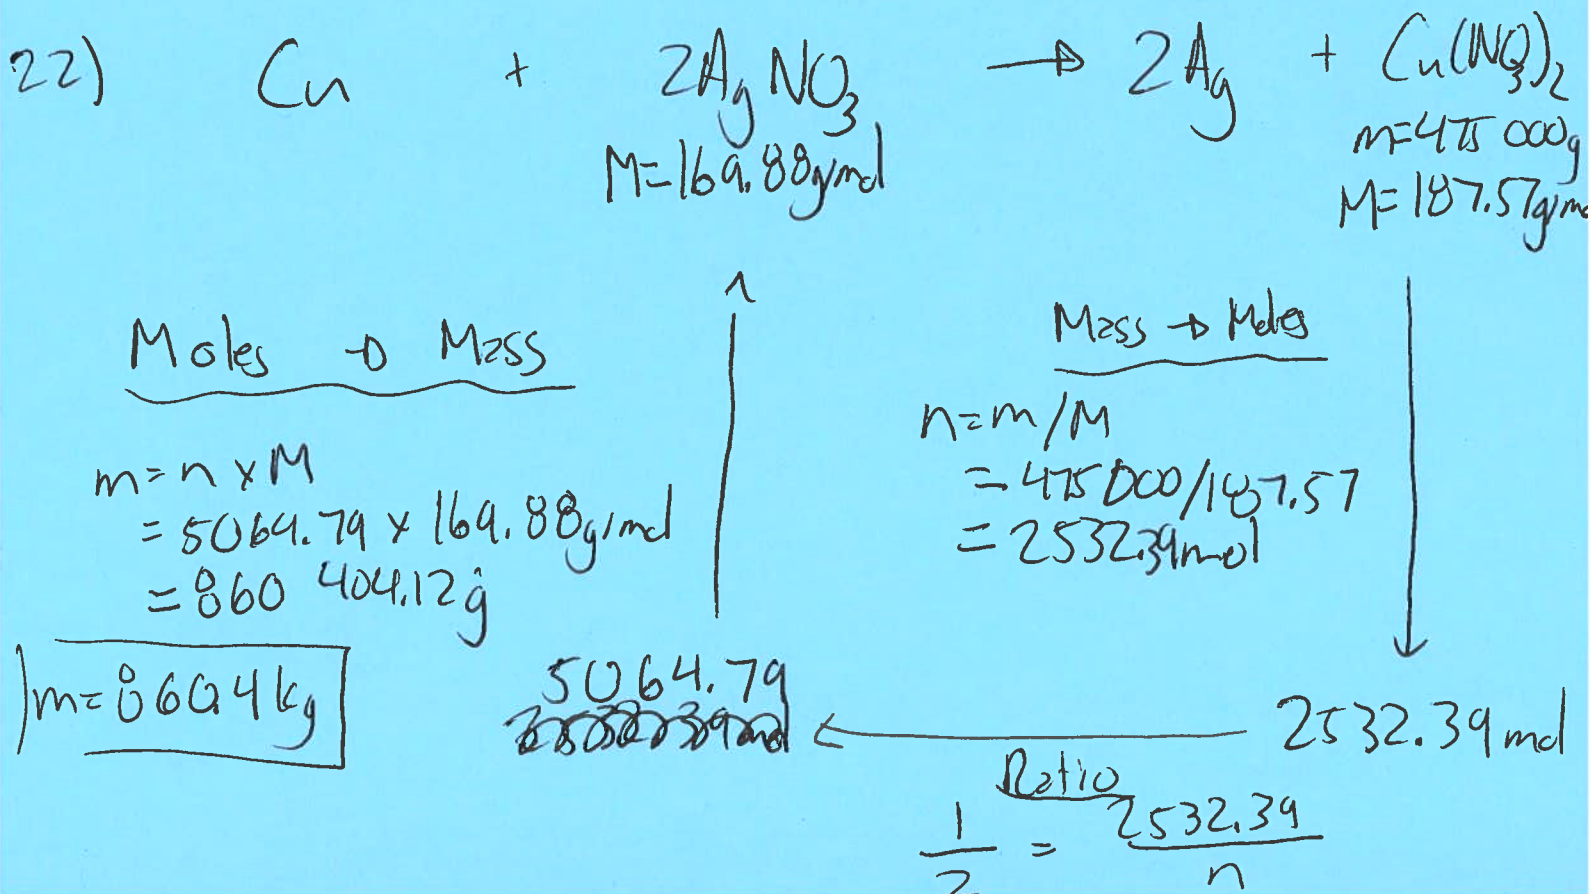 22) Cu + 2AgNO3 → 2Ag + Cu(NO3)2
M=169.88g/mol
m=475 000g
M=187.57g/mo
Moles → Mass
m=n×M
=5064.79×169.88g/mol
=860 404.12g
m=860.4kg
Mass → Moles
n=m/M
=475000/187.57
=2532.39mol
5064.79
2532.39mol
2532.39mol
Ratio
1/2 = 2532.39/n